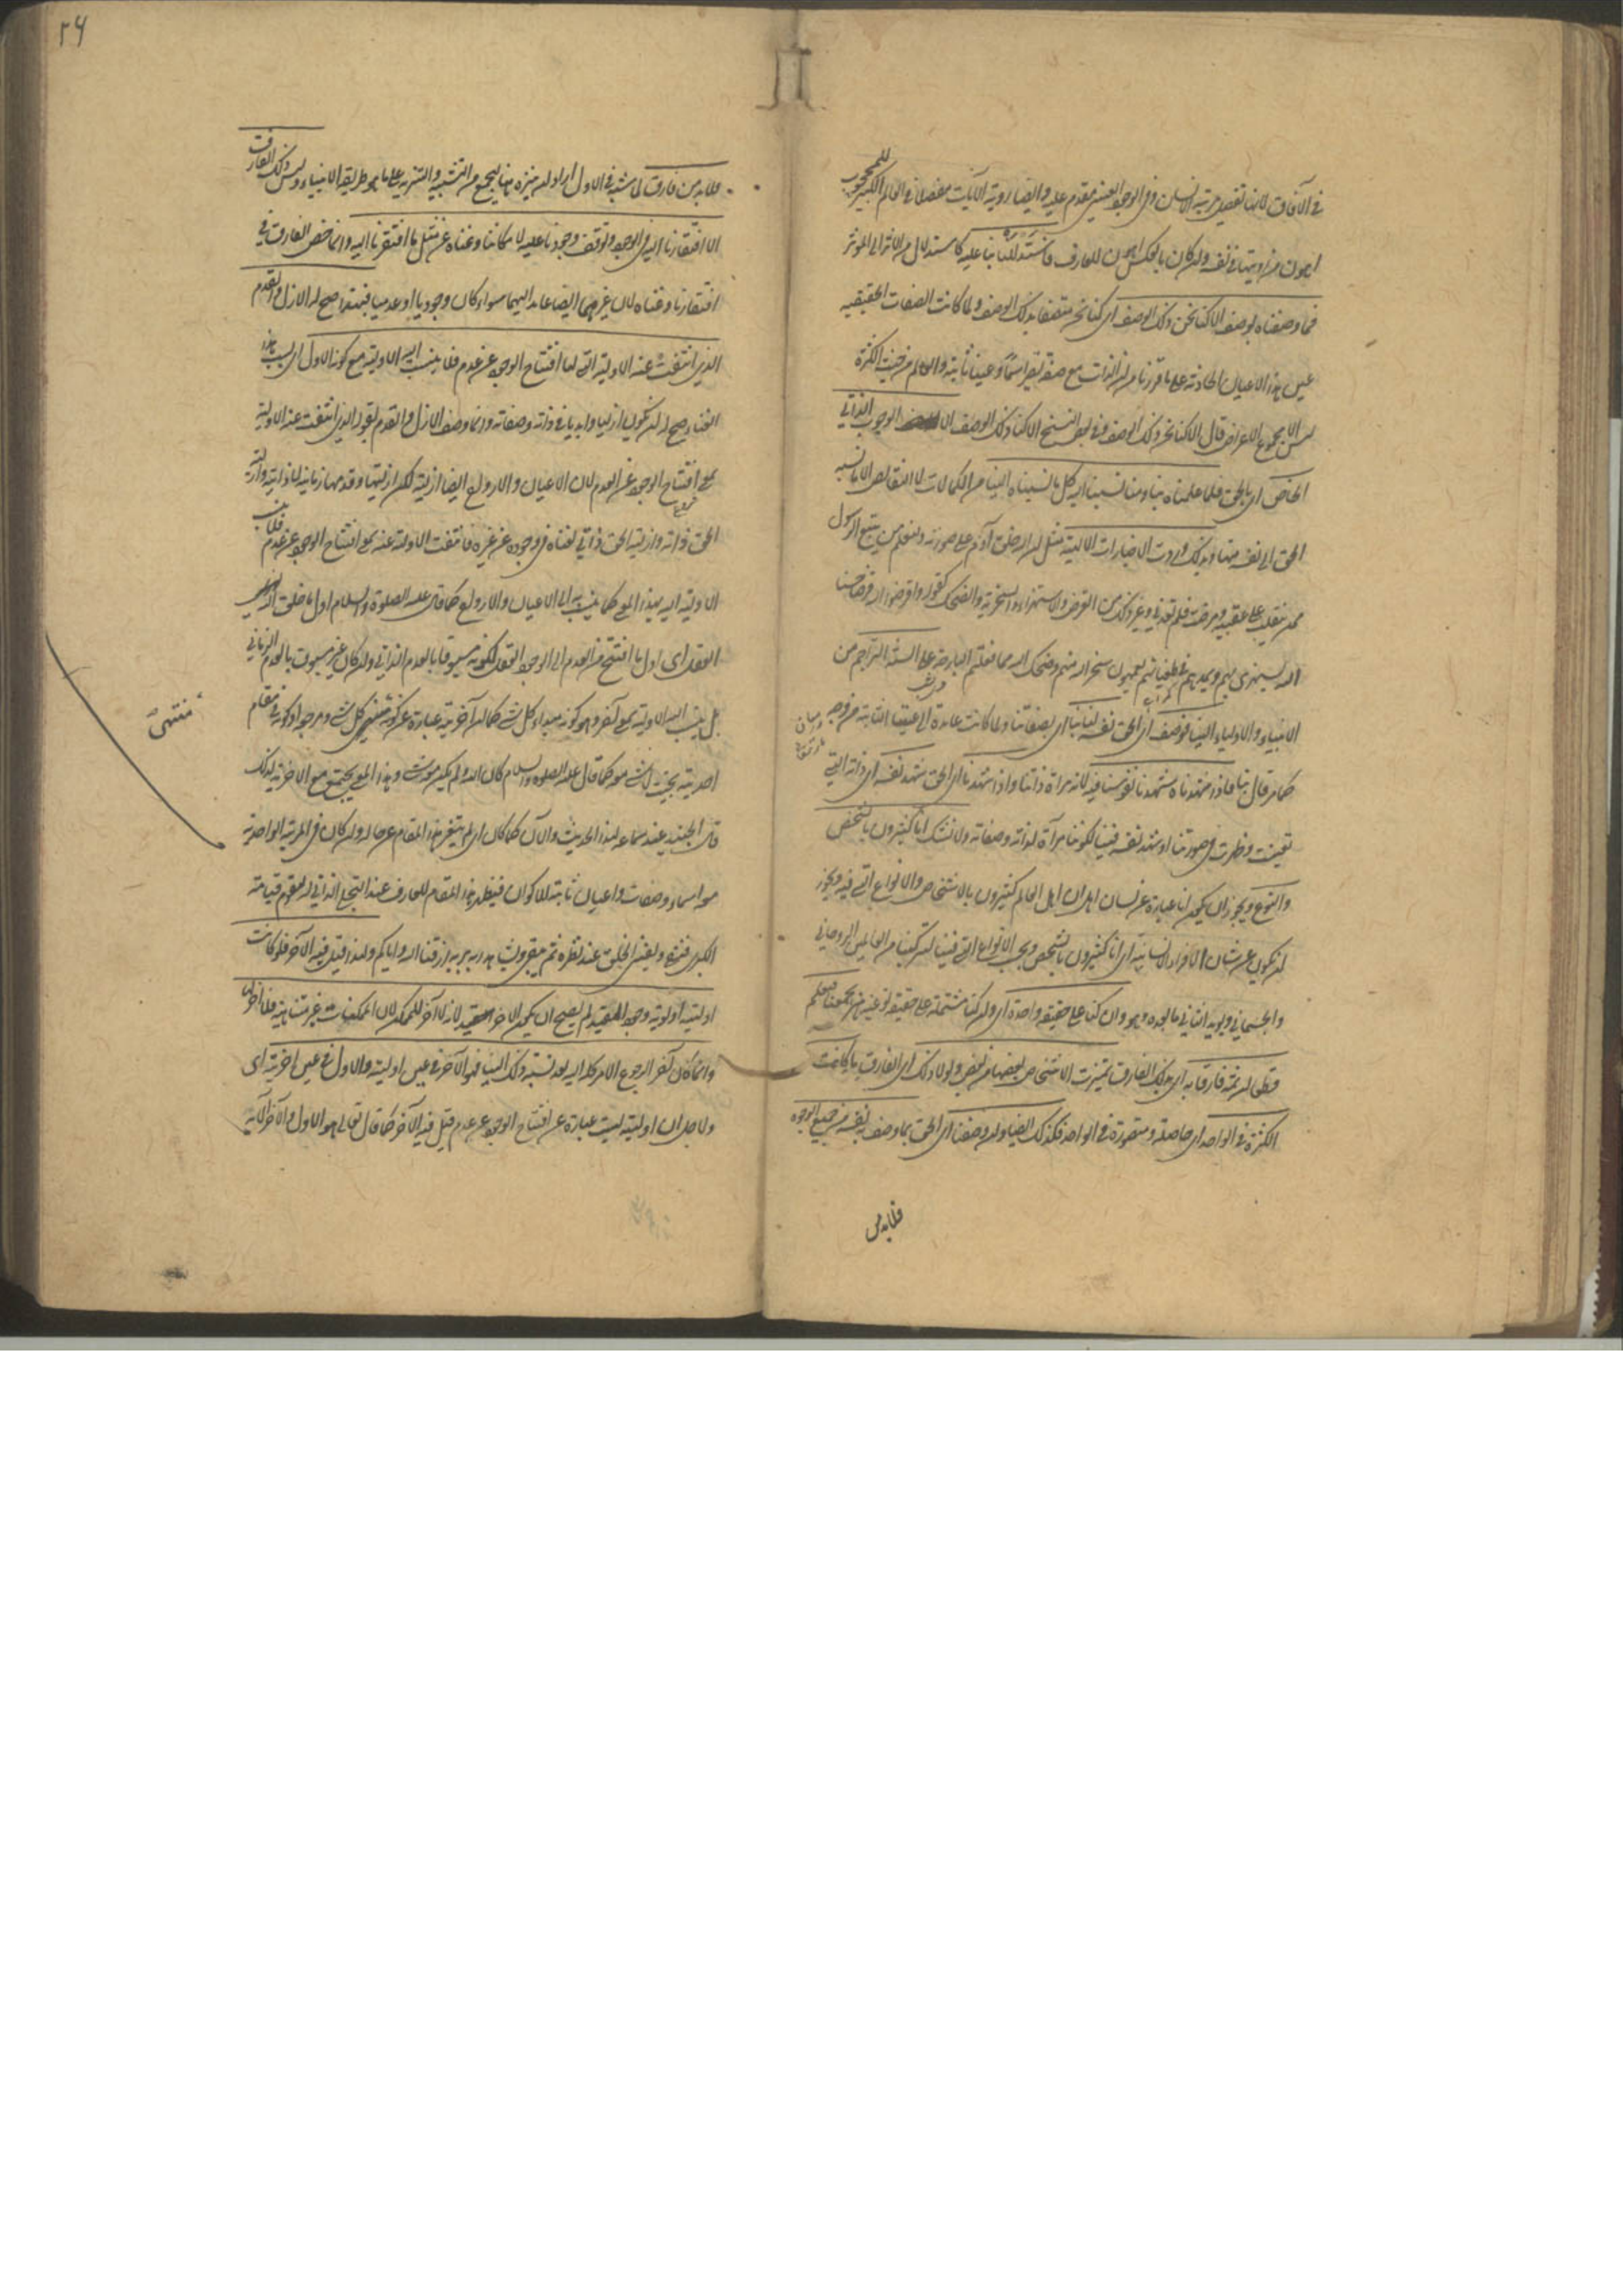 في الآفاق لانها تفصيل مرتبة الانسان وفي الوجود العيني مقدم عليه وايضا رؤية الآيات مفصلا في العالم الكبير للمحجوب
اهون من رؤيتها في نفسه وان كان بالعكس اهون للعارف فاستدللنا بنا عليه كاستدلال من الاثر الى المؤثر
فما وصفناه بوصف الا كنا نحن ذلك الوصف اي كنا نحن متصفا بذلك الوصف ولما كانت الصفات الحقيقية
عين هذه الاعيان الحادثة على ما قررنا من ان الذات مع صفة تصير اسما وعينا ثابتة والعالم من حيث الكثرة
ليس الا مجموع الاعراض قال الا كنا نحن ذلك الوصف وفي بعض النسخ الا كنا ذلك الوصف الا الوجوب الذاتي
الخاص اي بالحق فلما علمناه بنا ومنا نسبنا اليه كل ما نسبناه الينا من الكمالات لا النقايص الا ما نسبه
الحق الى نفسه منها وبذلك وردت الاخبارات الالهية مثل ان الله خلق آدم على صورته ولنعلم من يتبع الرسول
ممن ينقلب على عقبيه ومرضت فلم تعدني وغير ذلك من القرض والاستهزاء والسخرية والضحك كقوله واقرضوا الله قرضا حسنا
الله يستهزئ بهم ويمدهم في طغيانهم يعمهون سخر الله منهم وضحك الله مما فعلتم البارحة على السنة التراجم من
الانبياء والاولياء الينا فوصف اي الحق نفسه لنا بنا اي بصفاتنا ولما كانت عائدة الى عيننا الثابتة من وجه
كما مر قال بنا فاذا شهدناه شهدنا نفوسنا فيه لانه مرآة ذاتنا واذا شهدنا اي الحق شهد نفسه اي ذاته التي
تعينت وظهرت في صورتنا او شهد نفسه فينا لكوننا مرآة لذاته وصفاته ولا نشك انا كثيرون بالشخص
والنوع ويجوز ان يكون انا عبارة عن لسان اهل العالم اي ان اهل العالم كثيرون بالاشخاص والانواع التي فيه ويجوز
ان يكون عن شان الافراد الانسانية اي انا كثيرون بالشخص وبحسب الانواع التي فينا لتركبنا من العالمين الروحاني
والجسماني ويؤيد الثاني ما بعده وهو وانا وان كنا على حقيقة واحدة اي وان كنا مشتملة على حقيقة نوعية هي تجمعنا فنعلم
قطعا ان ثمة فارقا به اي بذلك الفارق تميزت الاشخاص بعضها من بعض ولولا ذلك اي الفارق ما كانت
الكثرة في الواحد اي حاصلة ومتصورة في الواحد فكذلك ايضا وان وصفنا اي الحق بما وصف به نفسه من جميع الوجوه
فلا بد من
۲۶
فلا بد من فارق لما شبه في الاول اراد ان ينزه هنا ليجمع من التشبيه والتنزيه على ما هو طريقة الانبياء وليس ذلك الفارق
الا افتقارنا اليه في الوجود وتوقف وجودنا عليه لامكاننا وغناه عن مثل ما افتقرنا اليه وانما خص الفارق في
افتقارنا وغناه لان غيرهما ايضا عايد اليهما سواء كان وجوديا او عدميا فبهذا صح له الازل والقدم
الذي انتفت عنه الاولية التي لها افتتاح الوجود عن عدم فلا ينسب اليه الاولية مع كونه الاول اي بسبب هذا
الغنا صح له ان يكون ازليا وابديا في ذاته وصفاته وانما وصف الازل والقدم بقوله الذي انتفت عنه الاولية
بمعنى افتتاح الوجود عن العدم لان الاعيان والارواح ايضا ازلية لكن ازليتها وقدمها زمانية لا ذاتية وازلية
الحق ذاته وازلية الحق ذاتي لغناه في وجوده عن غيره فانتفت الاولية عنه بمعنى افتتاح الوجود عن عدم فلا ينسب
الاولية اليه بهذا المعنى كما ينسب به الى الاعيان والارواح كما قال عليه الصلوة والسلام اول ما خلق الله
العقل اي اول ما افتتح من العدم الى الوجود العقل لكونه مسبوقا بالعدم الذاتي وان كان غير مسبوق بالعدم الزماني
بل ينسب اليه الاولية بمعنى آخر وهو كونه مبداء كل شئ كما ان آخريته عبارة عن كونه منتهى كل شئ ومرجعه او كونه في مقام
منتهى
احديته بحيث لا شئ معه كما قال عليه الصلوة والسلام كان الله ولم يكن معه شئ وهذا المعنى يجتمع مع الآخرية لذلك
قال الجنيد عند سماعه لهذا الحديث والآن كما كان اي لم يتغير هذا المقام عن حاله وان كان في المرتبة الواحدية
معه اسماء وصفات واعيان ثابتة للاكوان فيظهر هذا المقام للعارف عند التجلي الذاتي له ليقوم قيامته
الكبرى فيفنى ويفنى الخلق عند نظره ثم يبقى ويشاهد ربه بربه رزقنا الله واياكم ولهذا قيل فيه الآخر فلو كانت
اوليته اولوية وجود المقيد لم يصح ان يكون الآخر للمقيد لانه لا آخر للممكن لان الممكنات غير متناهية فلا آخر لها
وانما كان آخرا لرجوع الامر كله اليه بعد نسبة ذلك الينا فهو الآخر في عين اوليته والاول في عين آخريته اي
ولاجل ان اوليته ليست عبارة عن افتتاح الوجود عن عدم قيل فيه الآخر كما قال تعالى هو الاول والآخر الآية